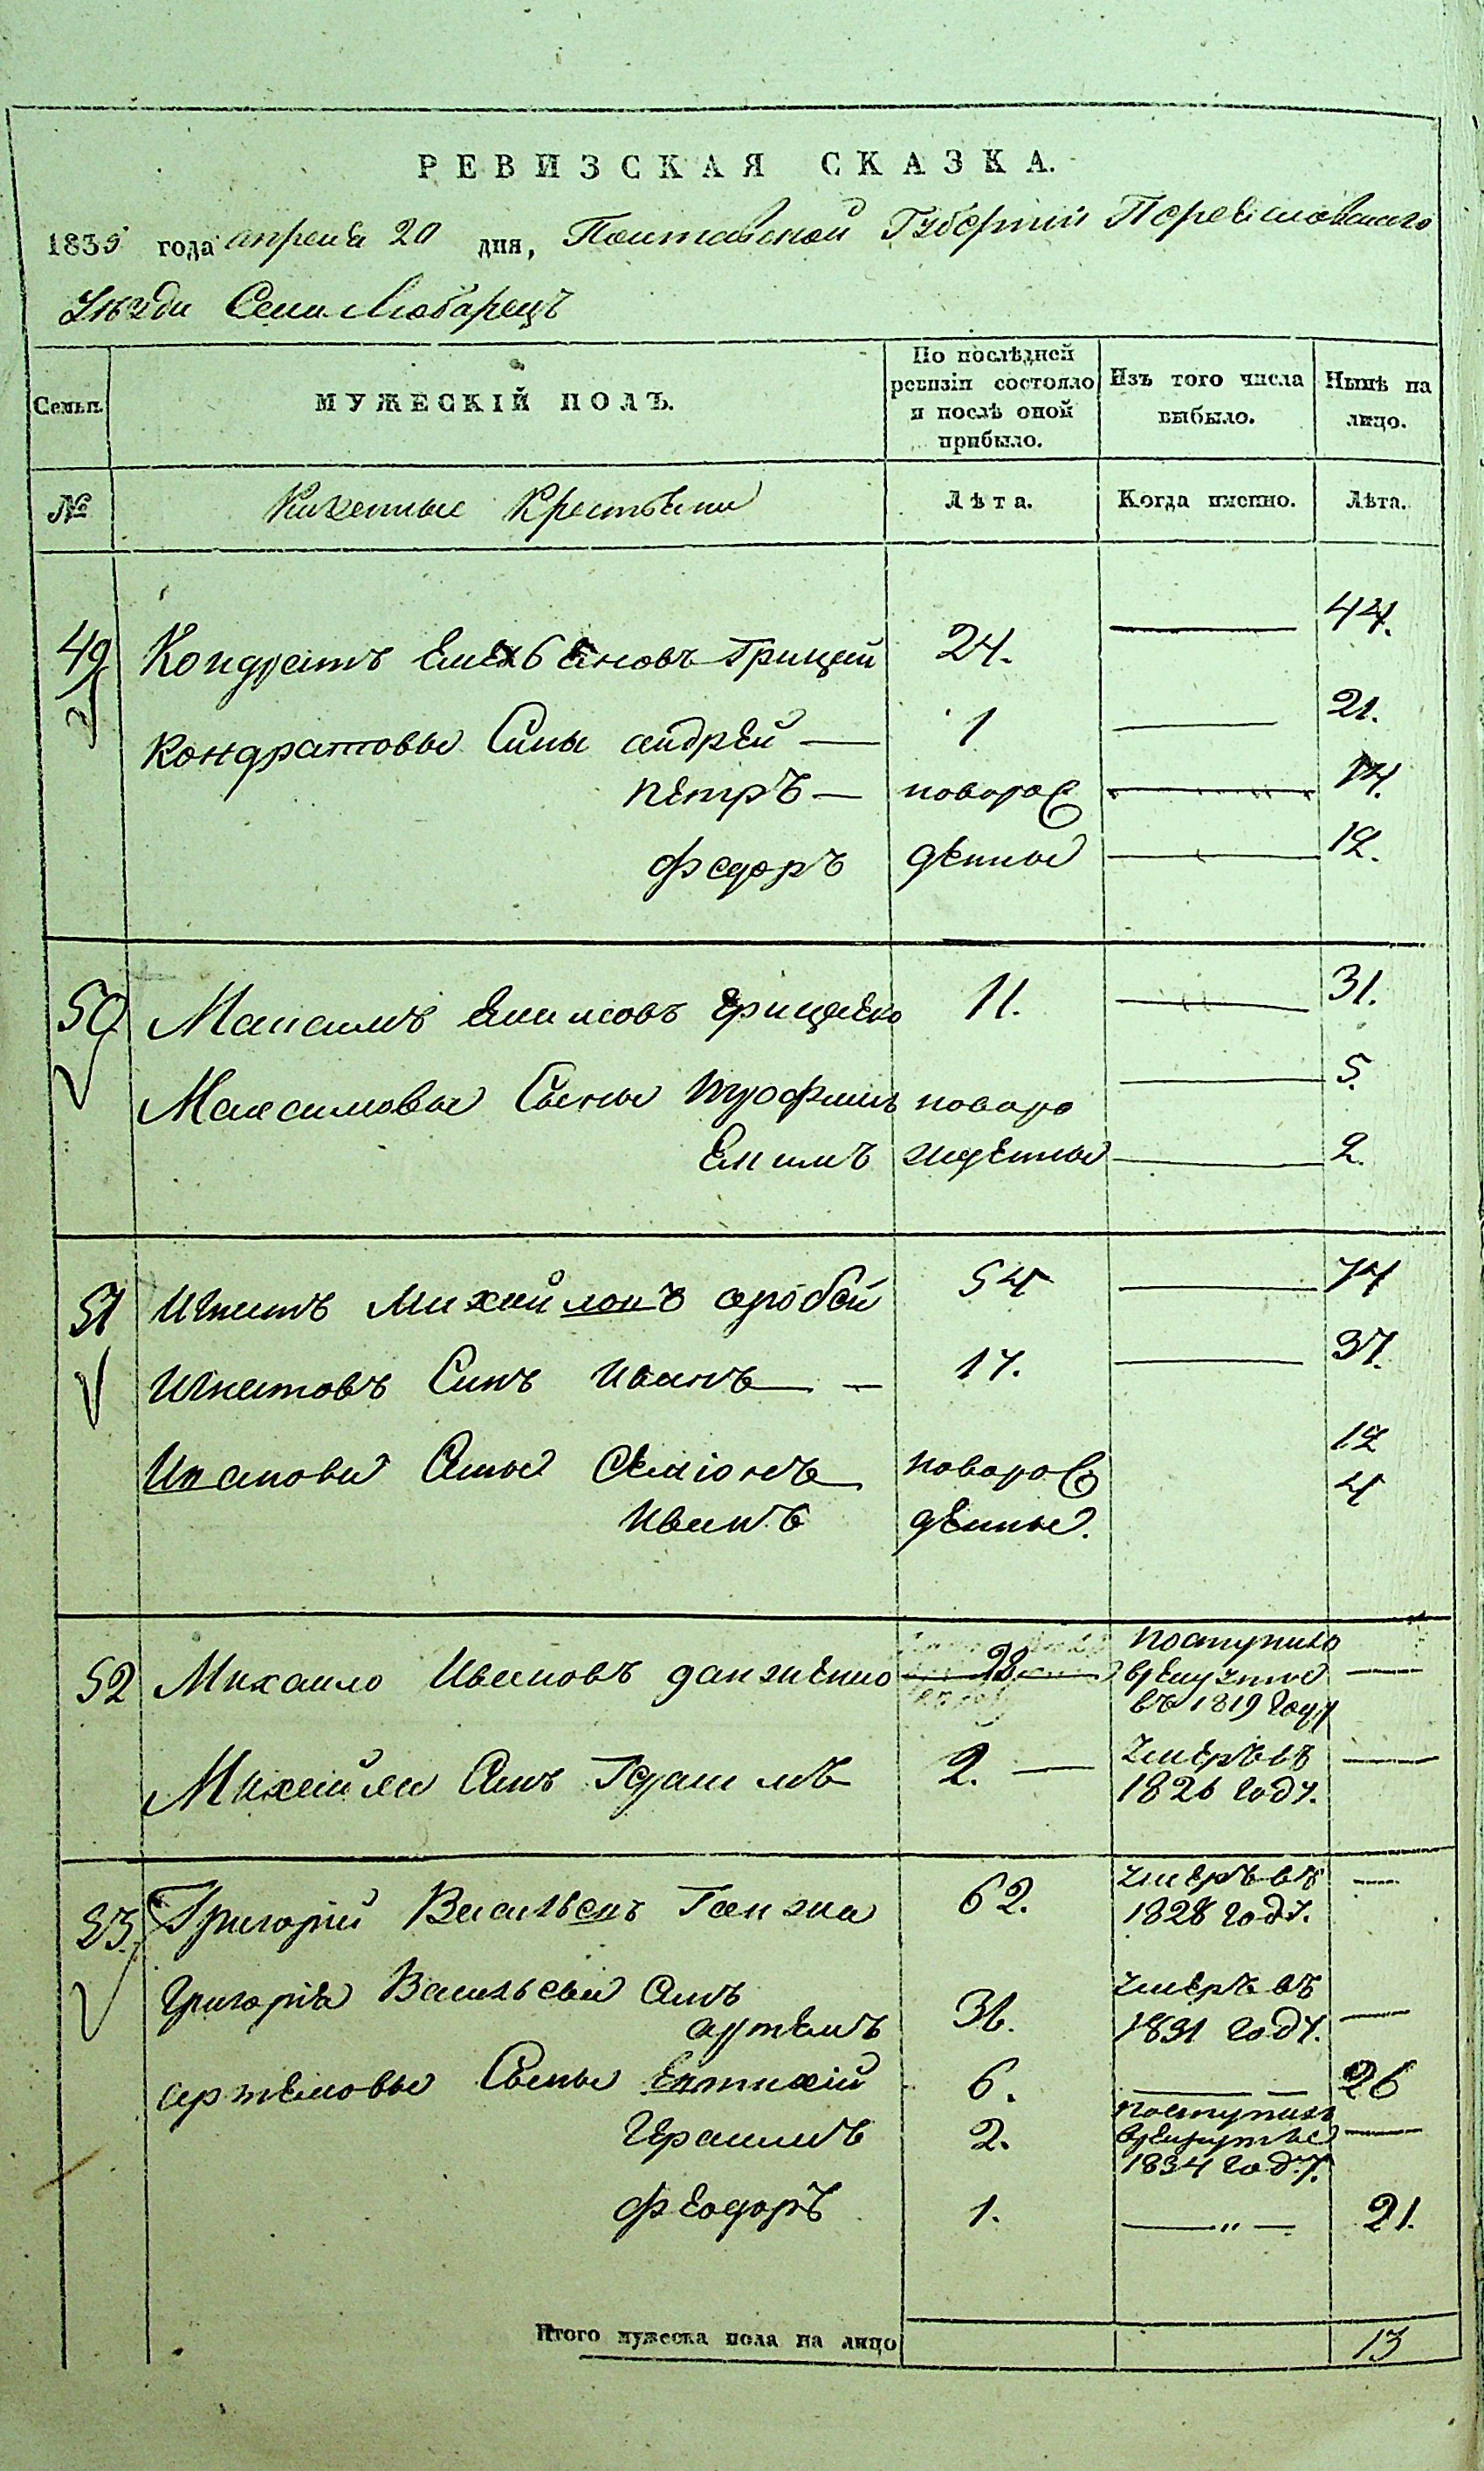 РЕВИЗСКАЯ СКАЗКА.
1835 года апреля 20 дня, Полтавской Губернии Переяславского
Уѣзда Села Любарецъ
Семьи. МУЖЕСКІЙ ПОЛЪ. По послѣдней ревизіи состояло и послѣ оной прибыло. Изъ того числа выбыло. Нынѣ на лицо.
№ Казенные Крестьяни Лѣта. Когда имянно. Лѣта.
49 Кондратъ 24. 44.
Кондратовы Сины андрей 1 21.
пЕтръ новорож 14.
федоръ дЕнные 12.
50 Максимъ Екимовъ грицЕко 11. 31.
Максимовы Сыны трофимъ новоро 5.
Екимъ ждЕнные 2.
51 Игнатъ Михайловъ 54 74
Игнатовъ Синъ Иванъ 17. 37.
Ивановы Сины СЕміонъ новорож 12
Иванъ дЕнные. 4
52 Михаило Ивановъ 28 поступило
врЕкруты
въ 1819 Году
Михайла Синъ Гарасимъ 2. умЕръ въ
1826 Году.
53. Григорій Васильевъ Ганжа 62. умЕръ въ
1828 Году.
Григорія Васильева Синъ
артЕмъ 36. умЕръ въ
1831 Году.
артЕмовы Сыны Евтихій 6. 26
Герасимъ 2. поступилъ
врЕкруты
1834 Году.
фЕодоръ 1. „ 21.
Итого мужеска пола на лицо 13